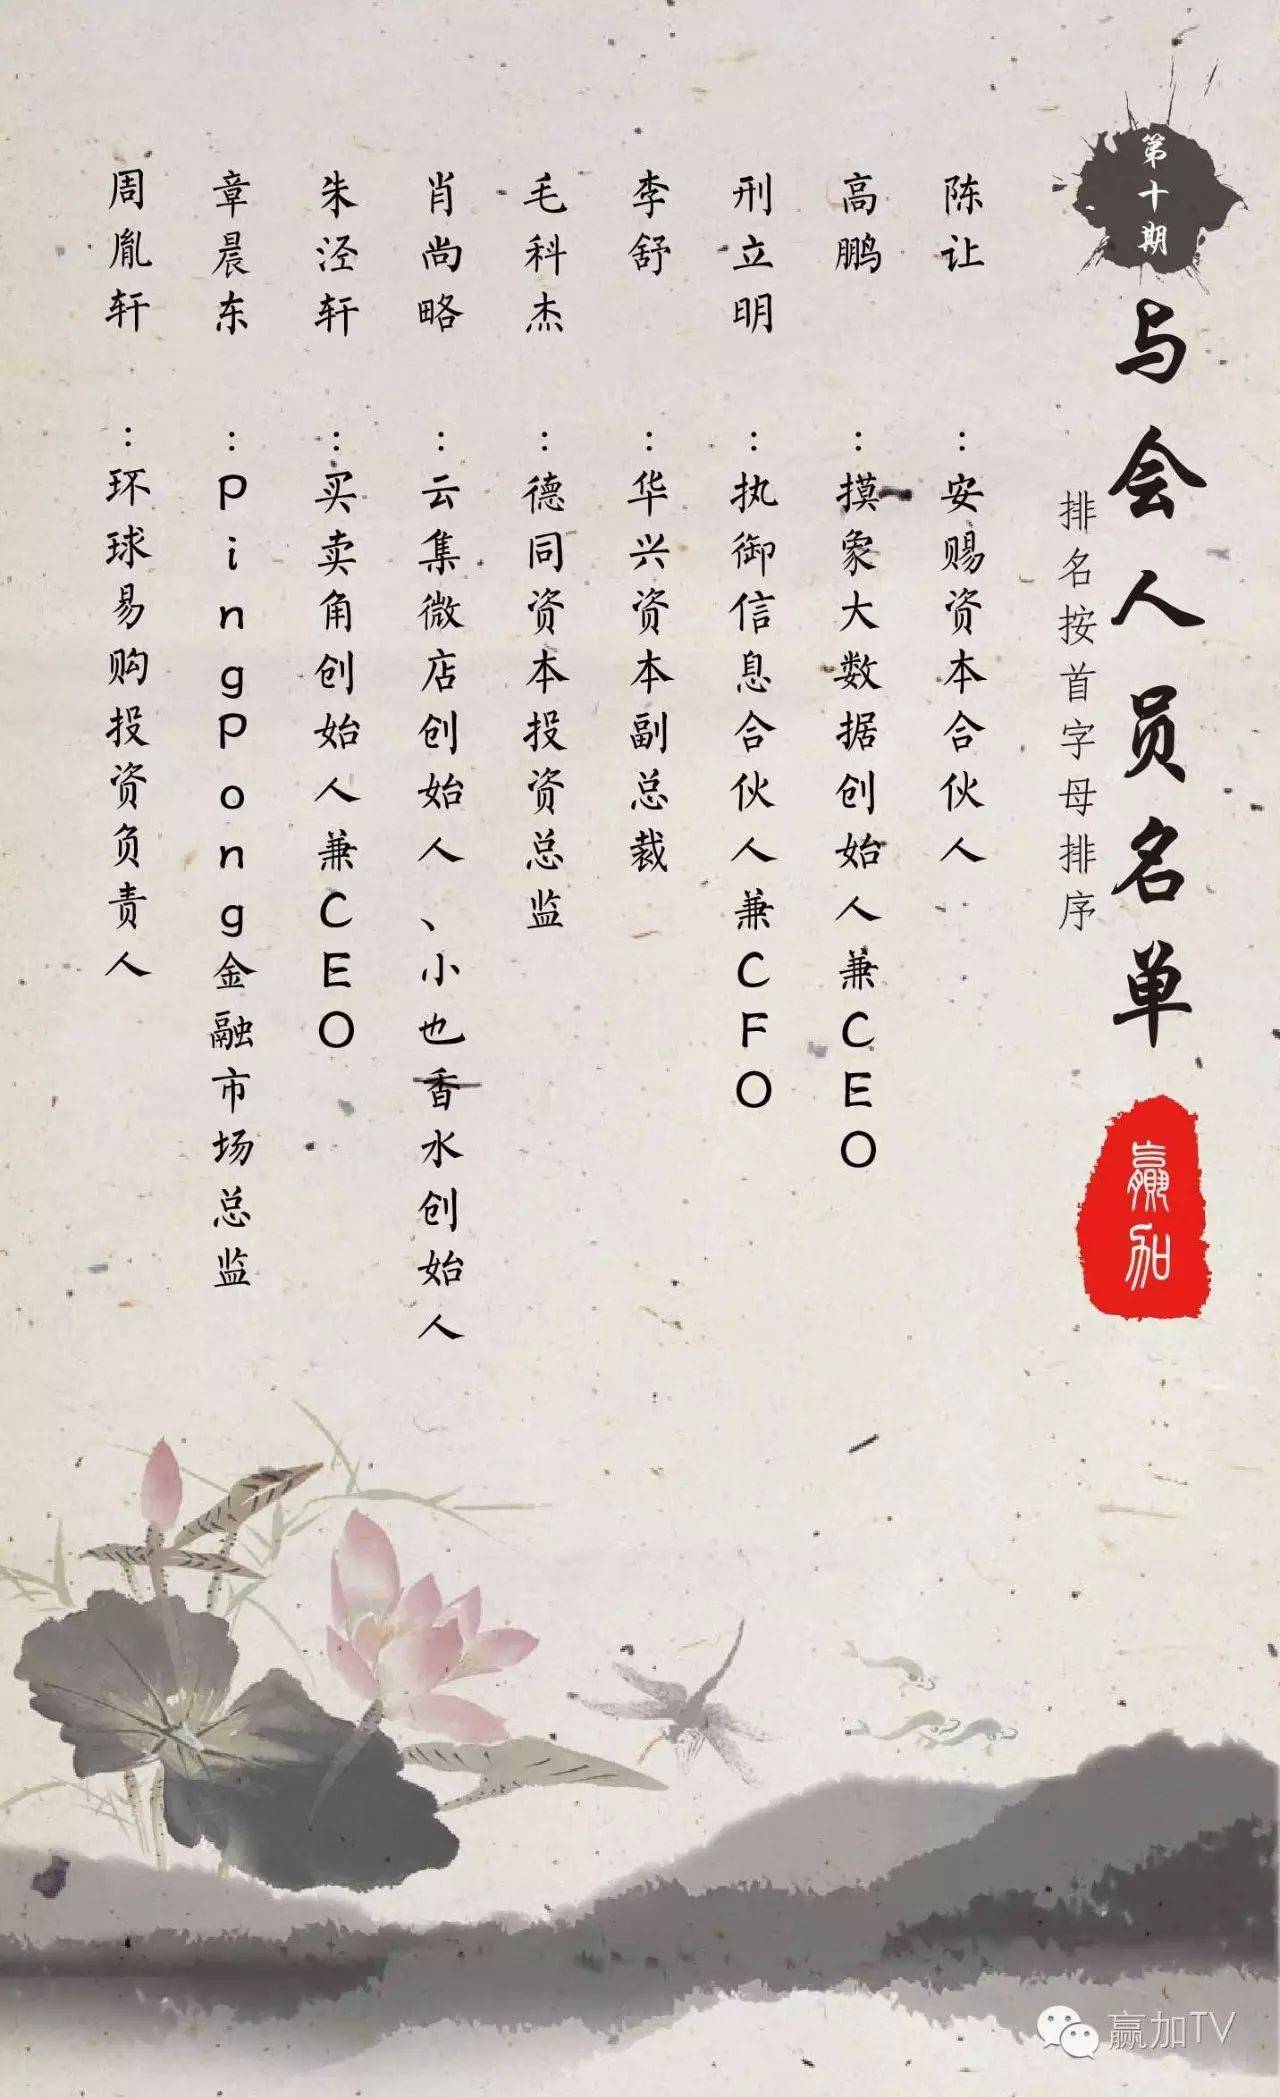 第十期
与会人员名单
赢加
排名按首字母排序
陈让：安赐资本合伙人
高鹏：摸象大数据创始人兼CEO
刑立明：执御信息合伙人兼CFO
李舒：华兴资本副总裁
毛科杰：德同资本投资总监
肖尚略：云集微店创始人、小也香水创始人
朱泾轩：买卖角创始人兼CEO
章晨东：PingPong金融市场总监
周胤轩：环球易购投资负责人
赢加TV